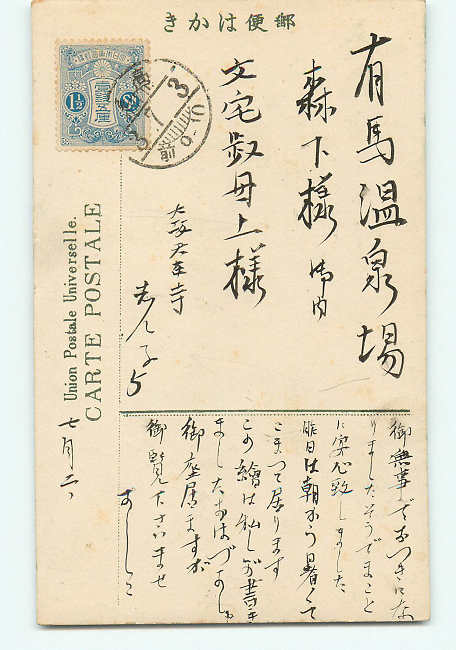 郵便はかき
有馬温泉場
森下様 御内
文宅叔母上様
七月二
御無事でおつきにな
りましたそうでまこと
に安心致しました
昨日は朝から暑くて
こまつて居ります
この繪は私しが書き
御座居ますが
御覧下さいませ
よし子
Union Postale Universelle.
CARTE POSTALE
1½